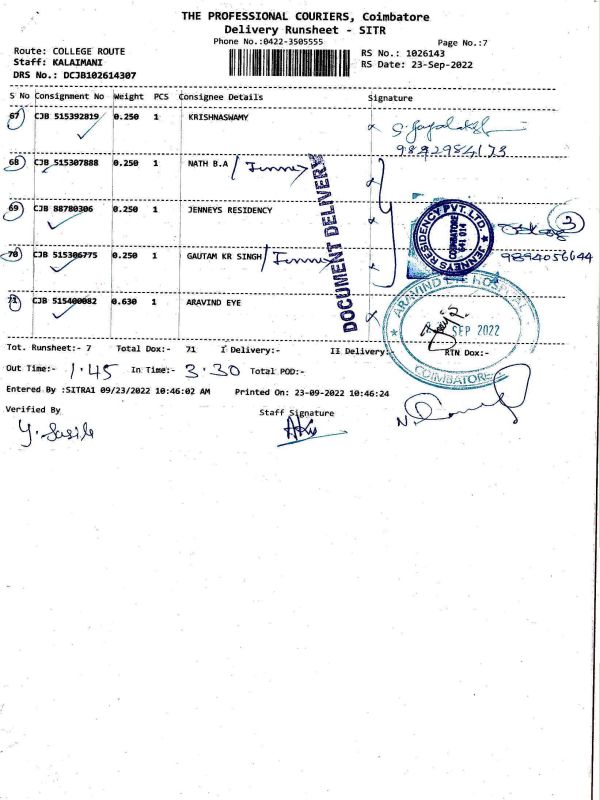 THE PROFESSIONAL COURIERS, Coimbatore
Delivery Runsheet - SITR
Phone No.:0422-3505555
Page No.:7
Route: COLLEGE ROUTE
RS No.: 1026143
Staff: KALAIMANI
RS Date: 23-Sep-2022
DRS No.: DCJB102614307
S No Consignment No Weight PCS Consignee Details Signature
67 CJB 515392819 0.250 1 KRISHNASWAMY
9892984173
68 CJB 515307888 0.250 1 NATH B.A / Jenneys
DOCUMENT DELIVERY
69 CJB 88780306 0.250 1 JENNEYS RESIDENCY
JENNEYS RESIDENCY PVT. LTD. COIMBATORE 641 014
3
70 CJB 515306775 0.250 1 GAUTAM KR SINGH / Jenneys
9894056644
71 CJB 515400082 0.630 1 ARAVIND EYE
ARAVIND EYE HOSPITAL
SEP 2022
COIMBATORE
Tot. Runsheet:- 7 Total Dox:- 71 I Delivery:- II Delivery:- RTN Dox:-
Out Time:- 1.45 In Time:- 3.30 Total POD:-
Entered By :SITRA1 09/23/2022 10:46:02 AM Printed On: 23-09-2022 10:46:24
Verified By Staff Signature
Y. Sasik